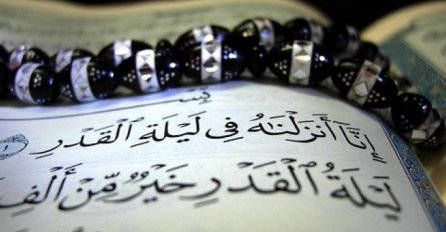 إِنَّآ أَنزَلْنَٰهُ فِى لَيْلَةِ ٱلْقَدْرِ
لَيْلَةُ ٱلْقَدْرِ خَيْرٌ مِّنْ أَلْفِ